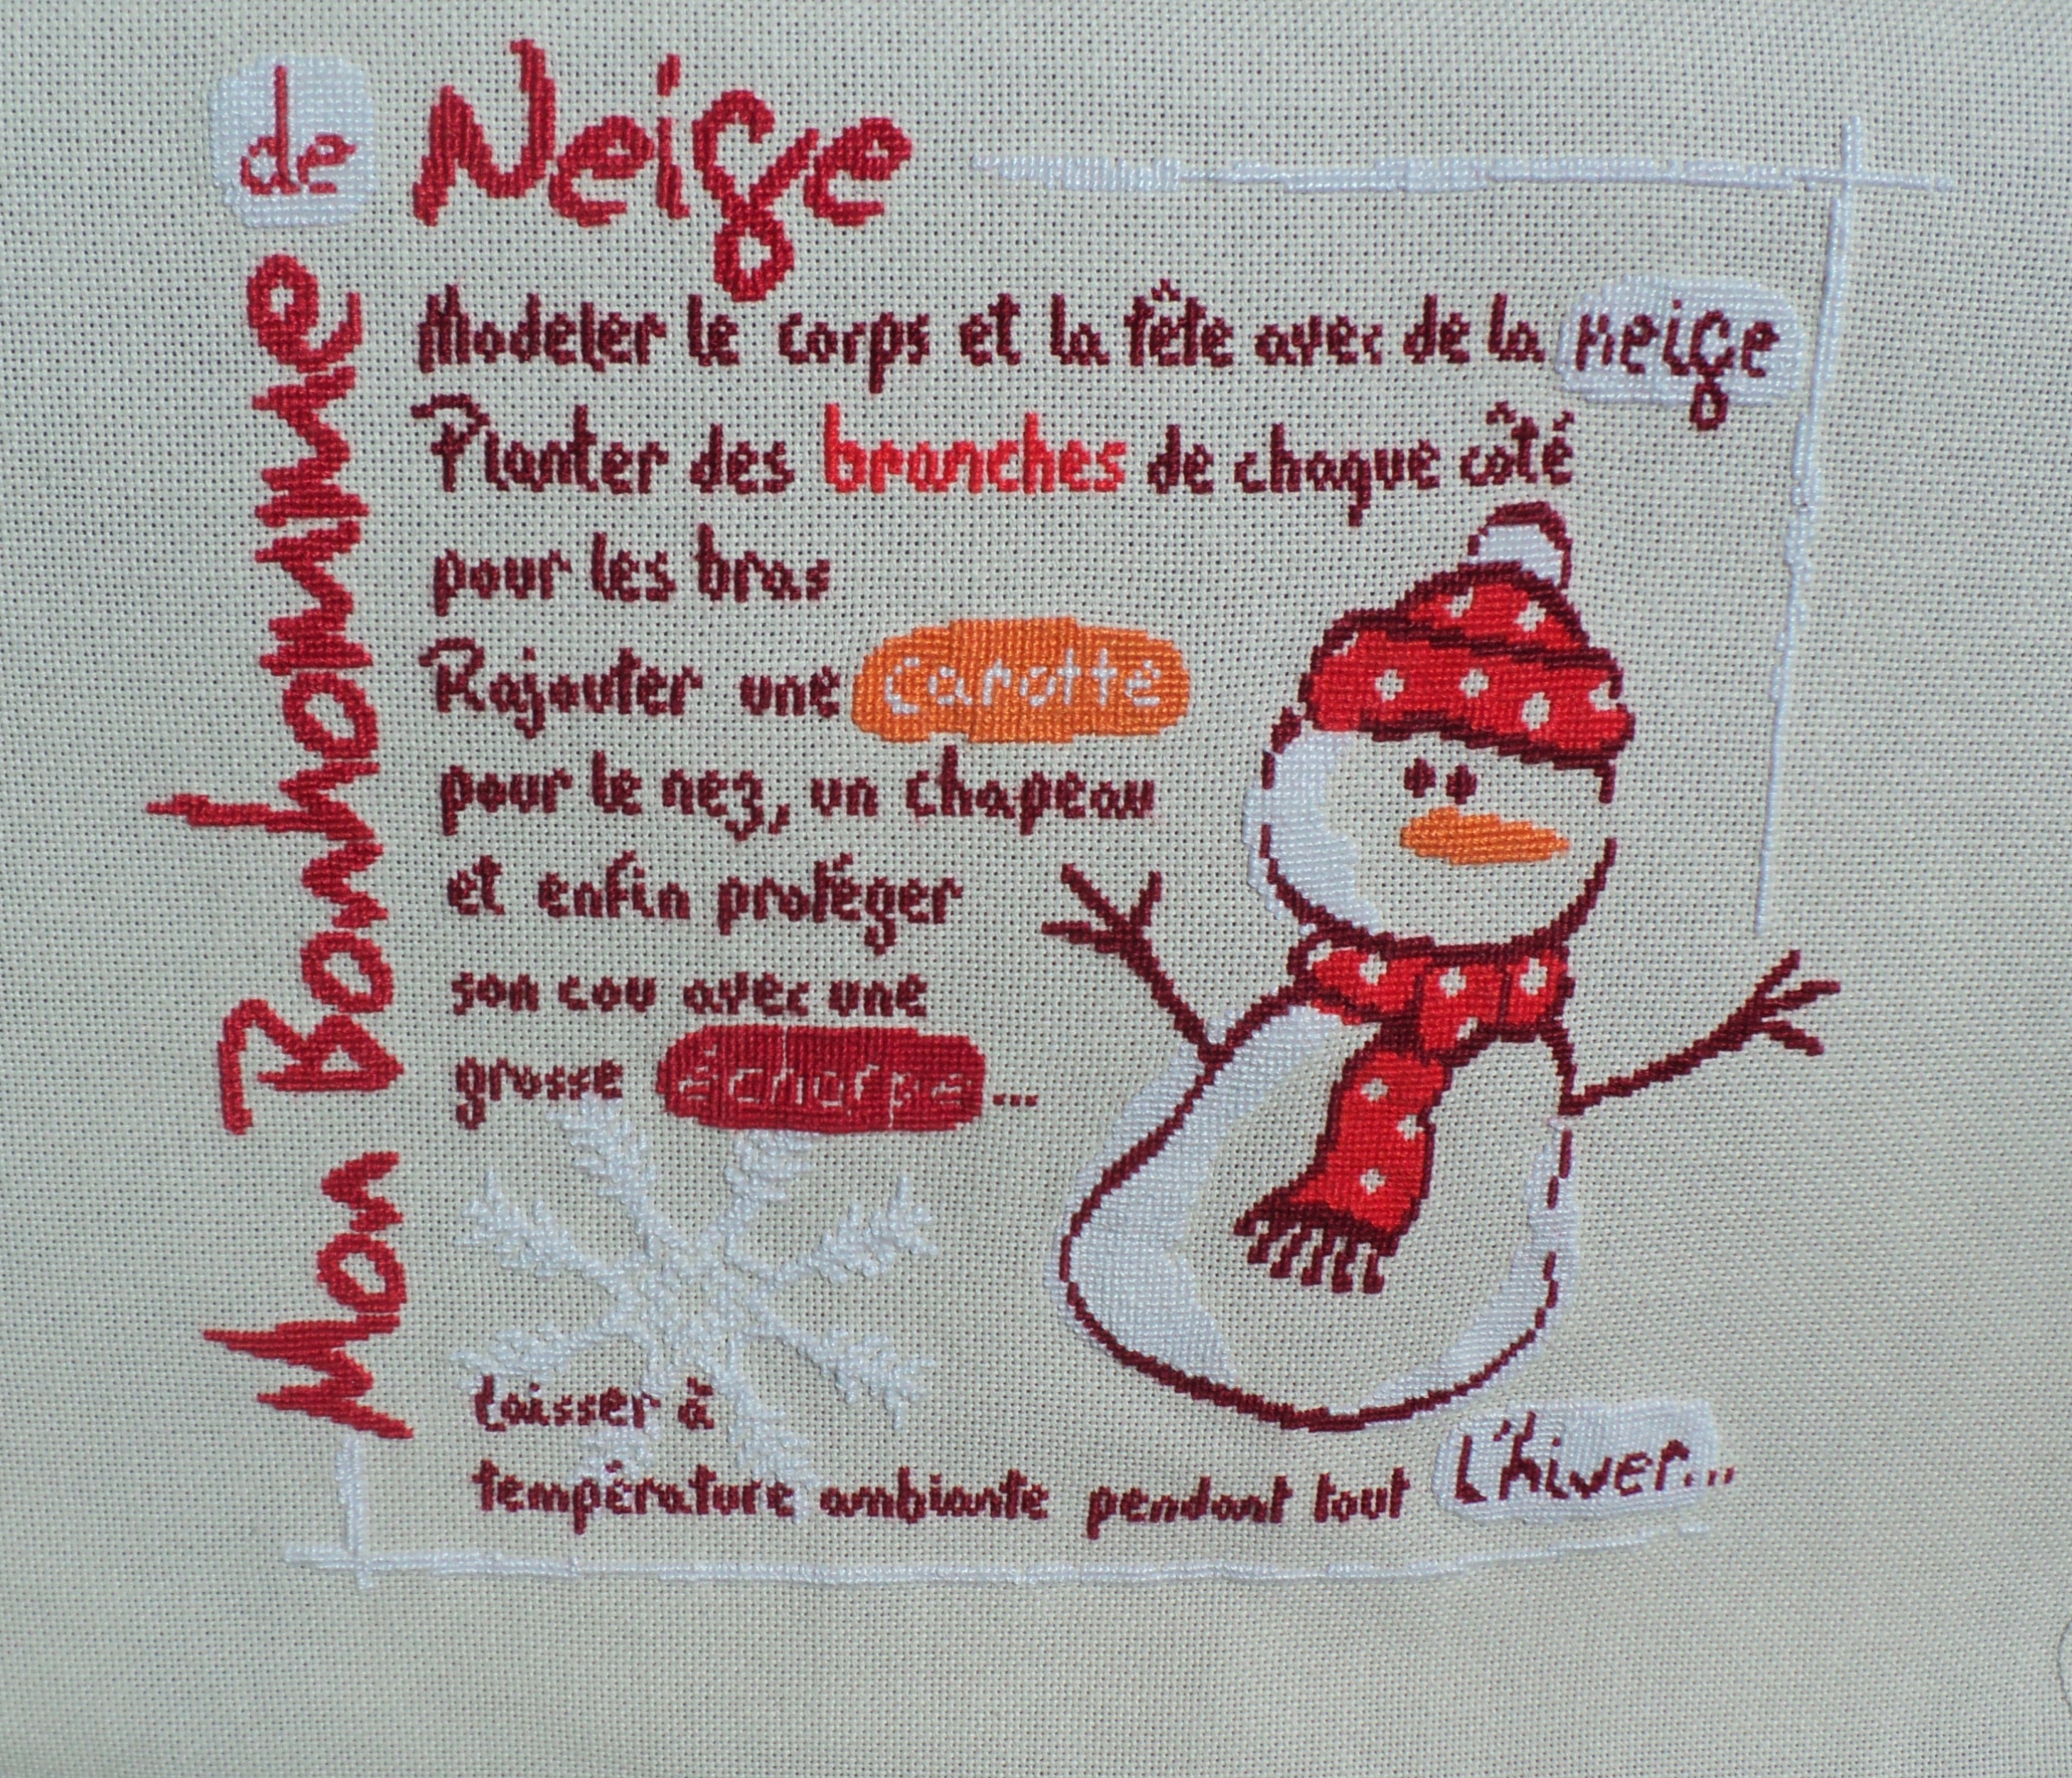 Mon Bonhomme
de Neige
Modeler le corps et la tête avec de la neige
Planter des branches de chaque côté
pour les bras
Rajouter une carotte
pour le nez, un chapeau
et enfin protéger
son cou avec une
grosse écharpe...
laisser à
température ambiante pendant tout l'hiver...